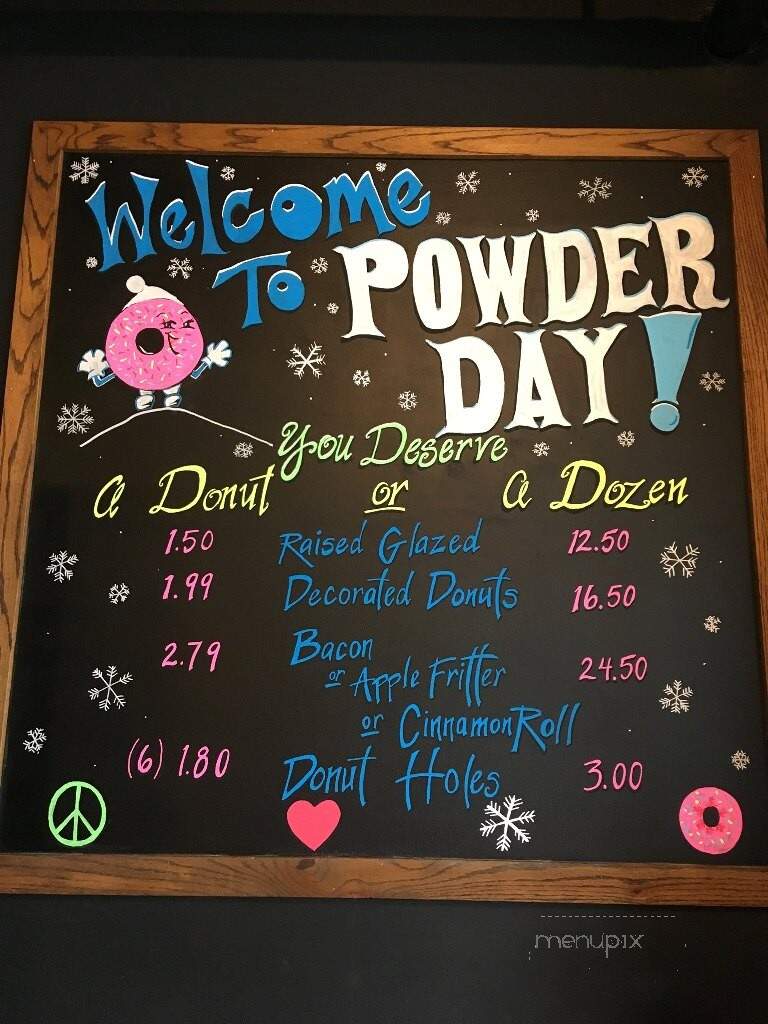 Welcome
To POWDER
DAY!
You Deserve
A Donut or A Dozen
1.50 Raised Glazed 12.50
1.99 Decorated Donuts 16.50
2.79 Bacon 24.50
or Apple Fritter
or Cinnamon Roll
(6) 1.80 Donut Holes 3.00
menupix